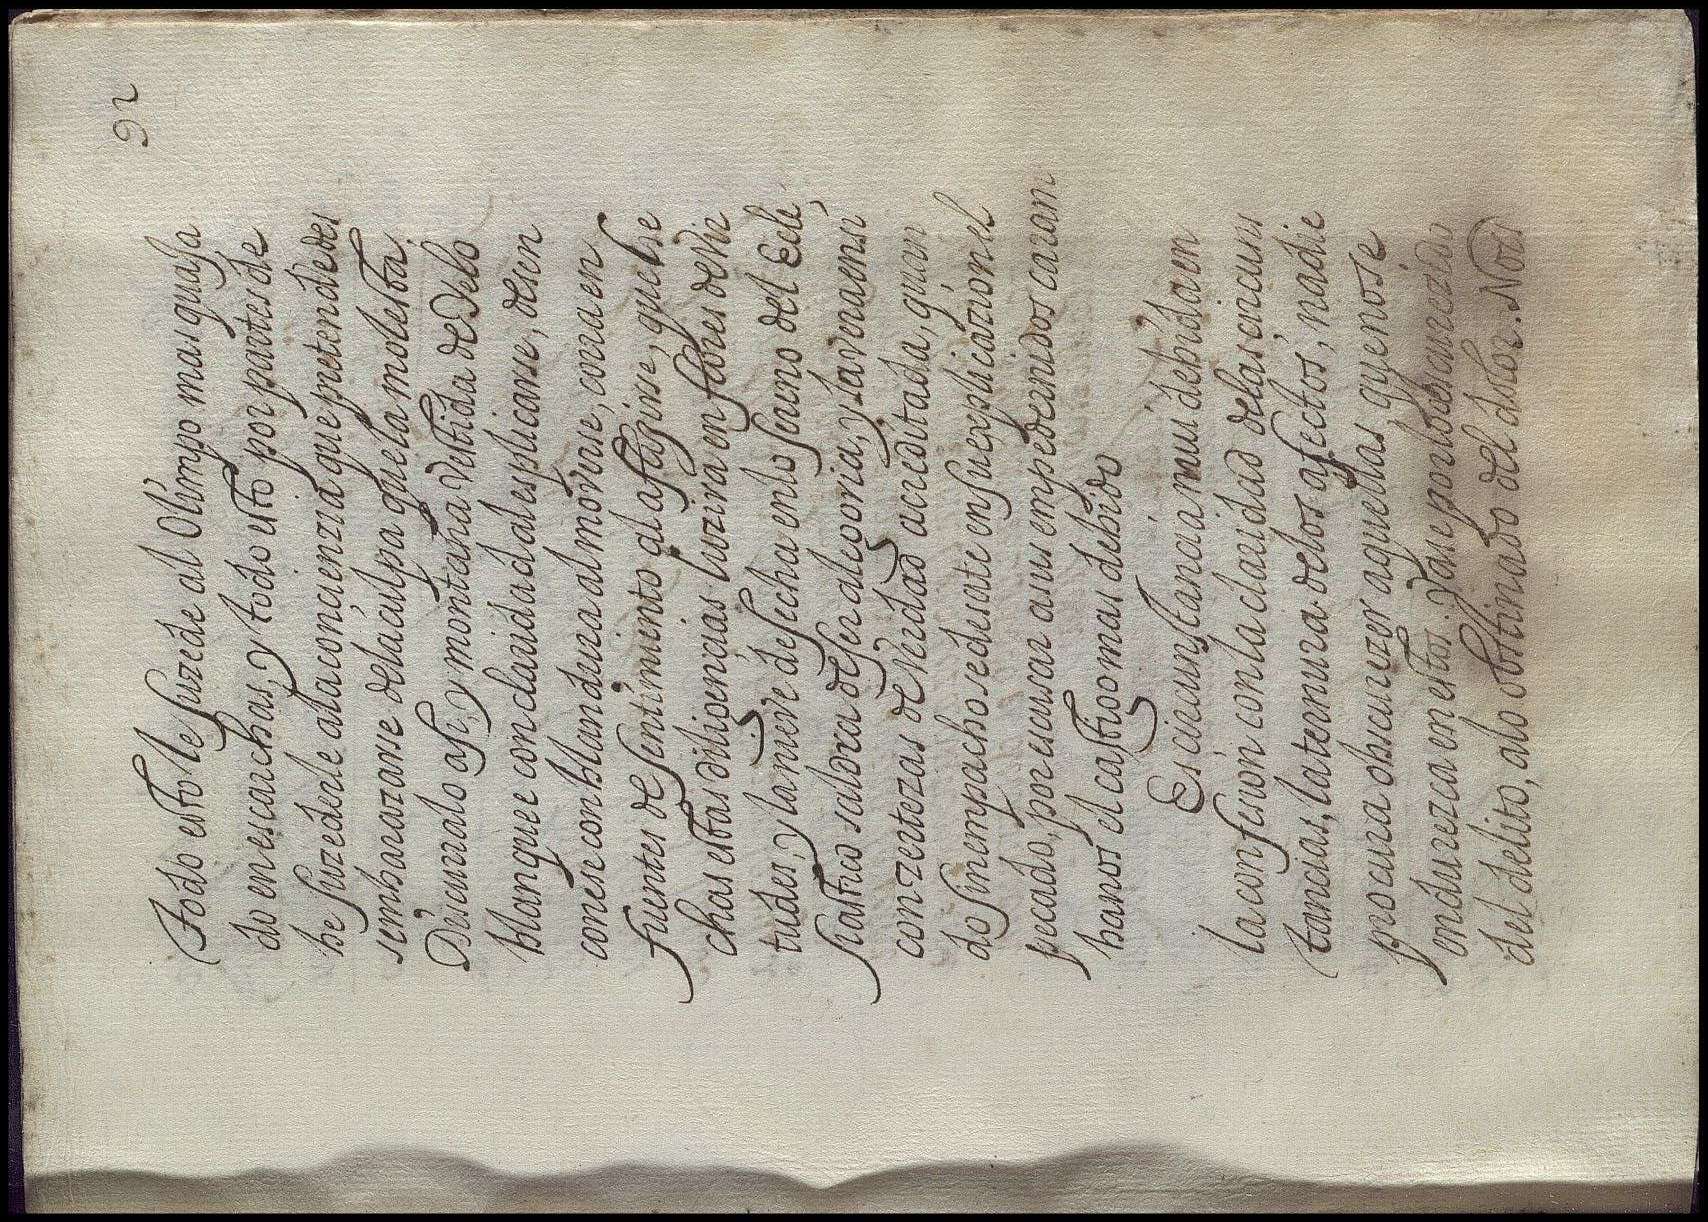 92
Todo esto le suzede al Olimpo mas quaja
do en escarchas, y todo esto por partes de
be suzederle a la conçienzia que pretende des
sembarazarse de la culpa que la molesta.
Discurralo assi, y montaña vestida de Yelo
blanquee con claridad al esplicarse, desen
conese con blandura al moverse, corra en
fuentes de sentimiento al afligirse, que he
chas estas diligencias luzira en flores de vir
tudes, y la nieve desecha en lo sereno del Ecle,
siastico sabra deser alegoria, y la veraensi
con zertezas de verdad acreditada, quan
do sin empacho se desate en su explicazion el
pecado, por escusar a mis empedernidos caram
banos el castigo mas debido
Es circunstancia mui debida en
la confesion con la claridad de las circuns
tancias, la ternura de los afectos, nadie
procura obscurezer aquellas, que no se
endurezca en estos. Dase por lo obscurezido
del delito, a lo obstinado del dolor. Nos